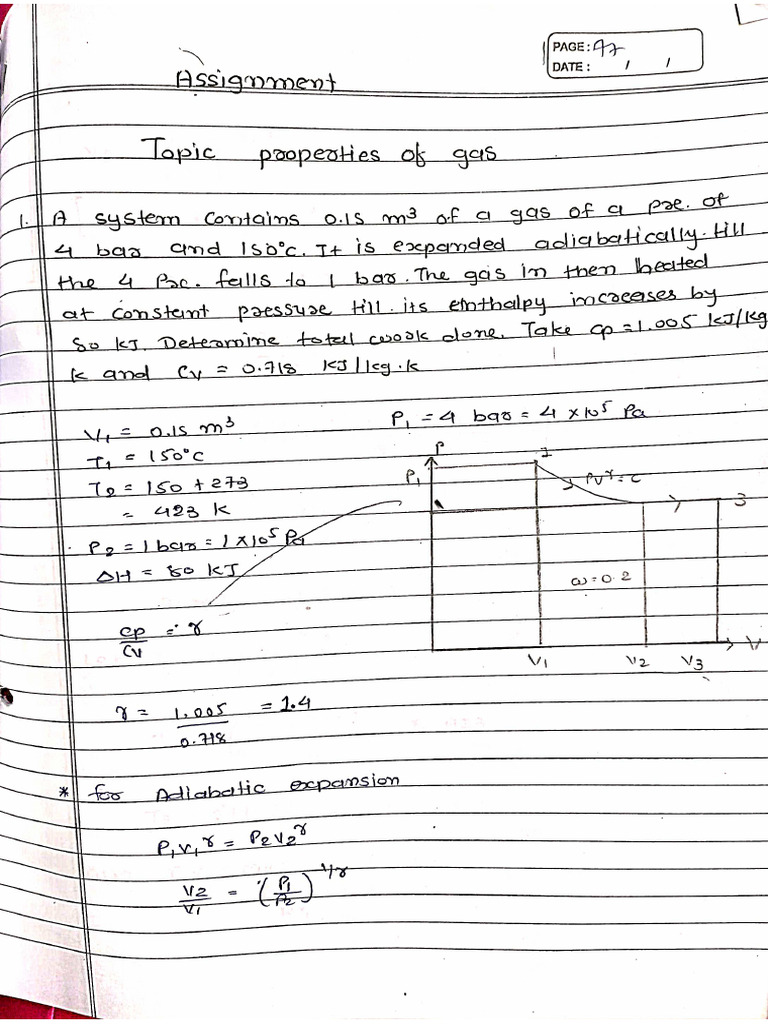 PAGE:
DATE: / /
Assignment
Topic properties of gas
1. A system contains 0.15 m³ of a gas of a pre. of
4 bar and 150°c. It is expanded adiabatically till
the 4 Prc. falls to 1 bar. The gas in then heated
at constant pressure till its enthalpy increases by
80 kJ. Determine total work done. Take cp = 1.005 kJ/kg
k and cv = 0.718 kJ/kg.k
V₁ = 0.15 m³
P₁ = 4 bar = 4 × 10⁵ Pa
T₁ = 150°C
T₂ = 150 + 273
= 423 k
P₂ = 1 bar = 1 × 10⁵ Pa
ΔH = 80 kJ
P
P₁
1
PVᵞ = C
3
ω = 0.2
V₁ V₂ V₃
V
cp/cv = γ
γ = 1.005/0.718 = 1.4
* for Adiabatic expansion
P₁V₁ᵞ = P₂V₂ᵞ
V₂/V₁ = (P₁/P₂)^1/γ